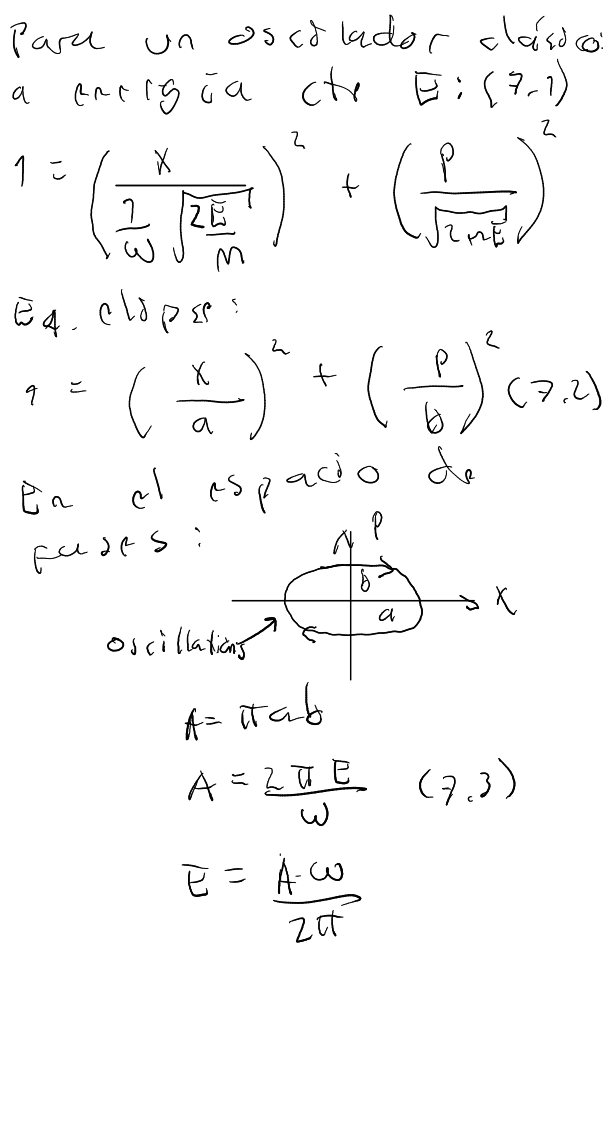 Para un oscilador clásico
a energía cte E: (7.1)
1 = (x / (1/ω √(2E/m)))² + (p / √(2mE))²
Eq. elipse:
1 = (x/a)² + (p/b)² (7.2)
En el espacio de
fases:
p
b
x
a
oscillations
A = πab
A = 2πE/ω (7.3)
E = A·ω/2π